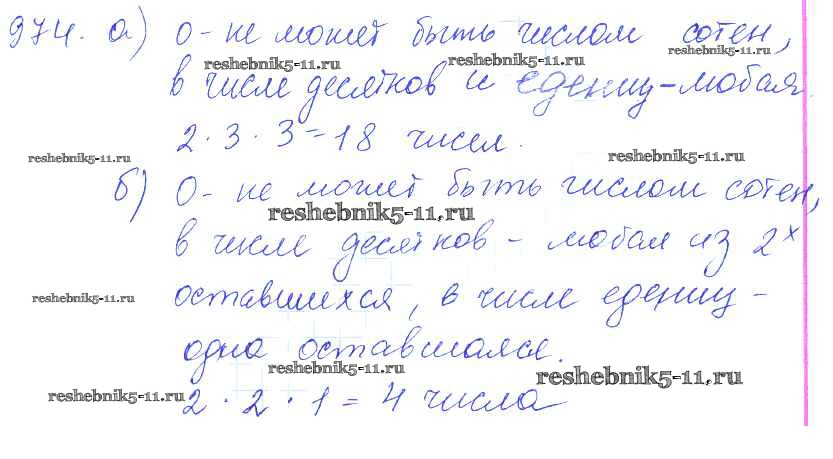 974. а) 0 - не может быть числом сотен,
reshebnik5-11.ru reshebnik5-11.ru reshebnik5-11.ru
в числе десятков и едениц - любая.
2 · 3 · 3 = 18 чисел.
reshebnik5-11.ru reshebnik5-11.ru
б) 0 - не может быть числом сотен,
reshebnik5-11.ru
в числе десятков - любая из 2х
reshebnik5-11.ru
оставшихся, в числе едениц -
одна оставшаяся.
reshebnik5-11.ru reshebnik5-11.ru
reshebnik5-11.ru
2 · 2 · 1 = 4 числа